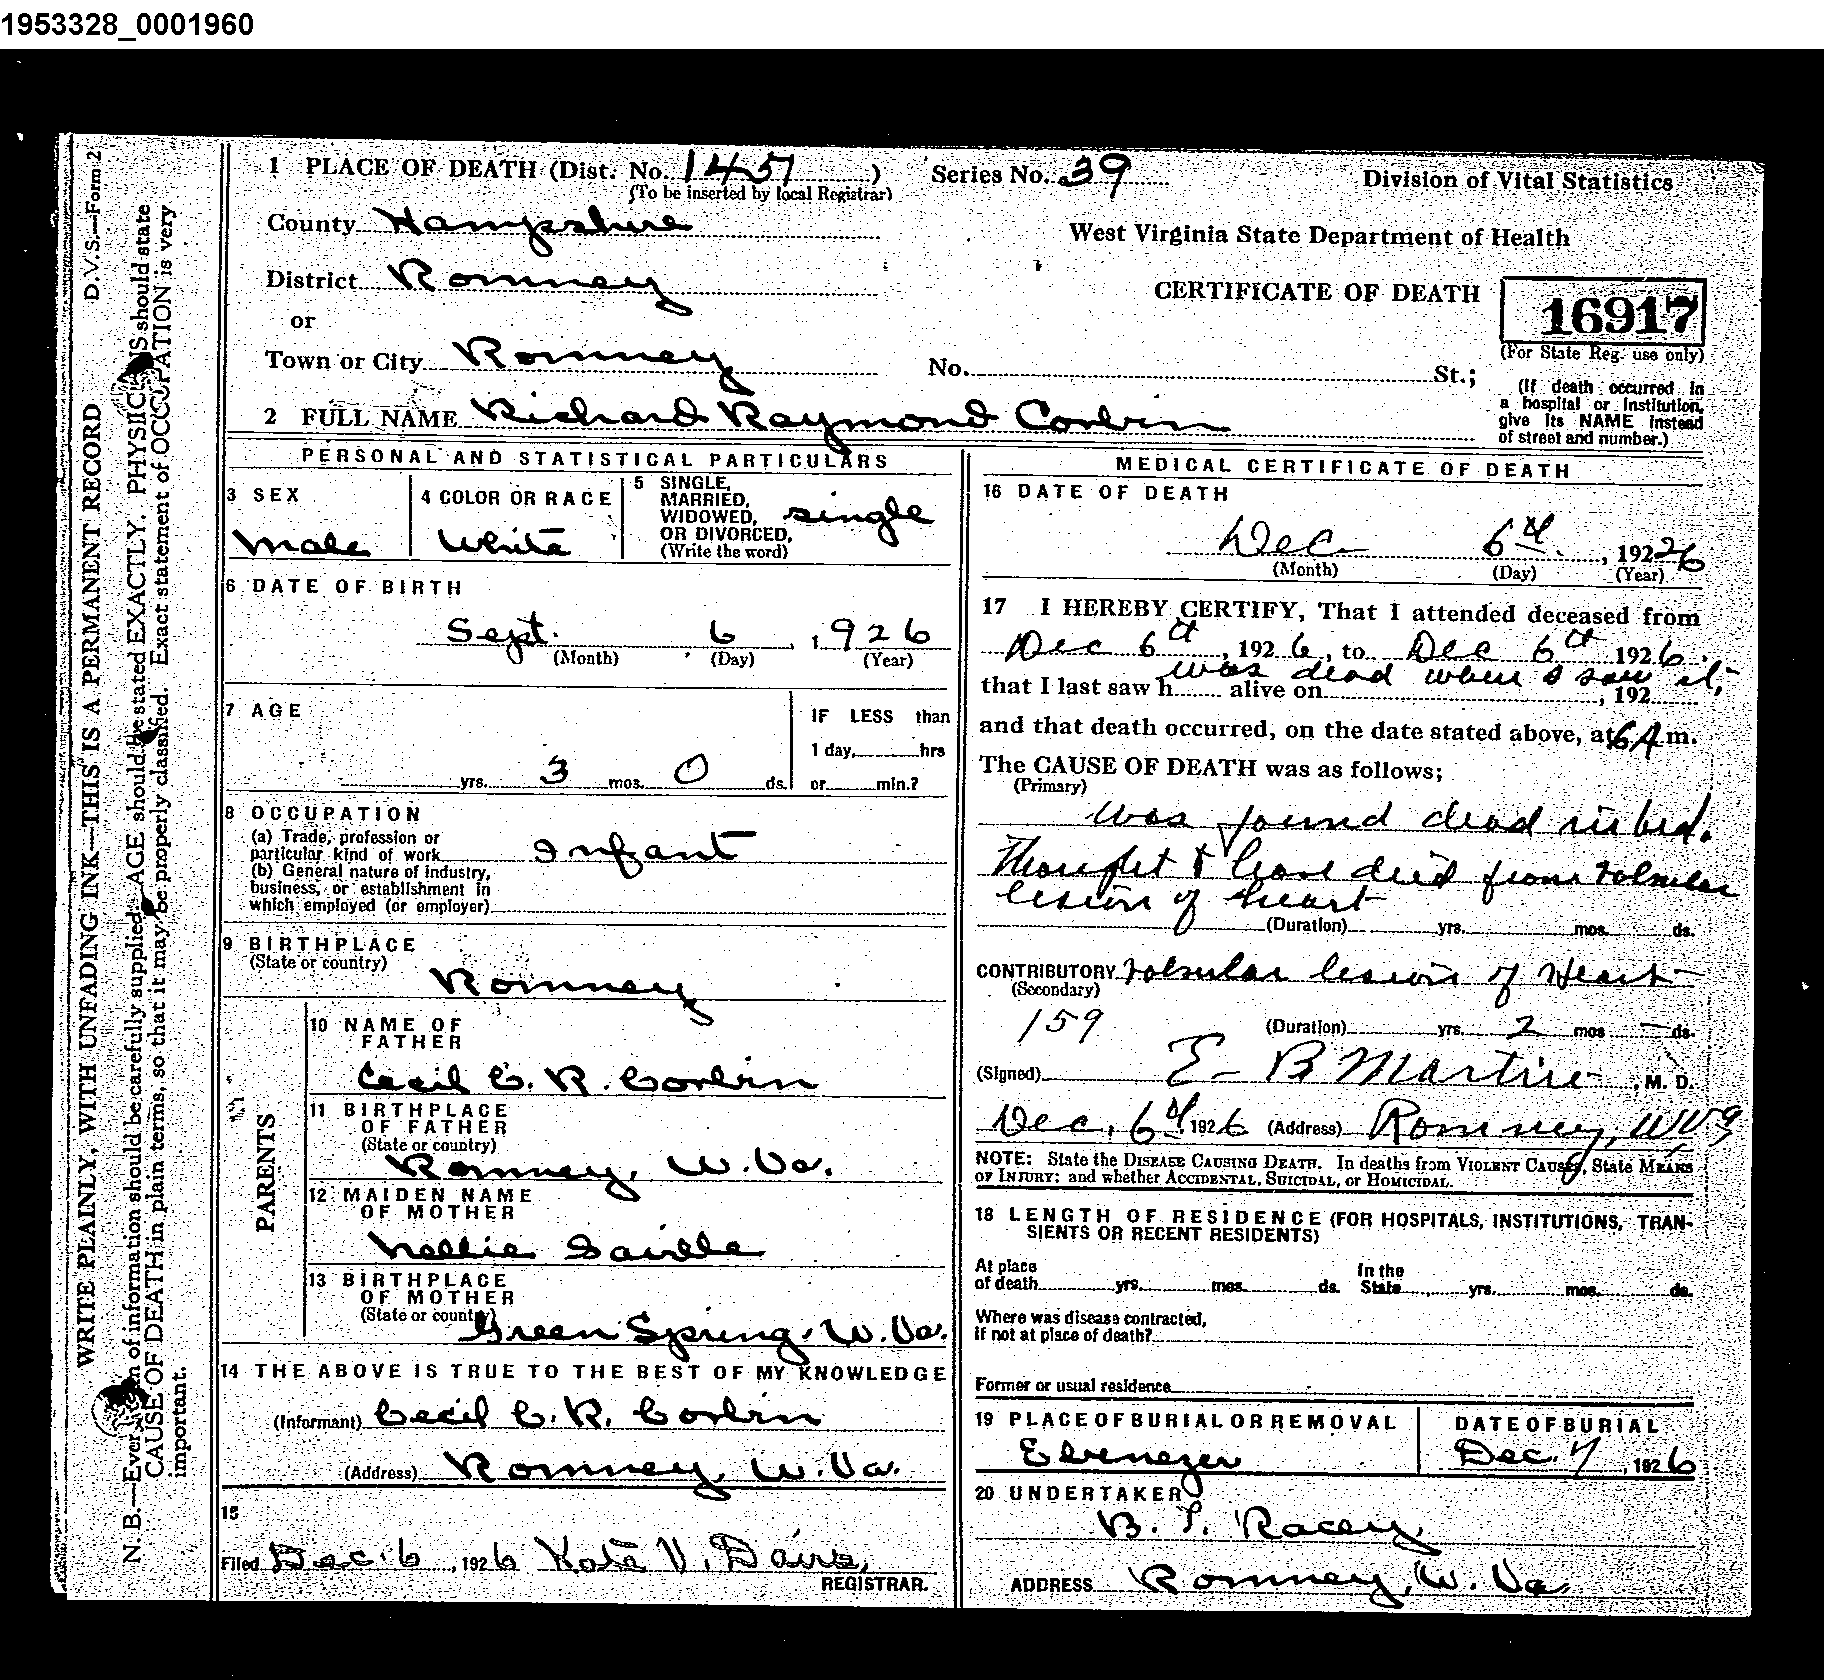 1953328_0001960
D.V.S.—Form 2
WRITE PLAINLY, WITH UNFADING INK—THIS IS A PERMANENT RECORD
N. B.—Every item of information should be carefully supplied. AGE should be stated EXACTLY. PHYSICIANS should state
CAUSE OF DEATH in plain terms, so that it may be properly classified. Exact statement of OCCUPATION is very
important.
1 PLACE OF DEATH (Dist. No. 1451) Series No. 39
(To be inserted by local Registrar)
Division of Vital Statistics
County Hampshire
West Virginia State Department of Health
District Romney
CERTIFICATE OF DEATH
16917
(For State Reg. use only)
or
Town or City Romney No. St.;
(If death occurred in
a hospital or institution,
give its NAME instead
of street and number.)
2 FULL NAME Richard Raymond Corbin
PERSONAL AND STATISTICAL PARTICULARS
3 SEX
Male
4 COLOR OR RACE
White
5 SINGLE,
MARRIED,
WIDOWED,
OR DIVORCED,
(Write the word)
single
6 DATE OF BIRTH
Sept. 6, 1926
(Month) (Day) (Year)
7 AGE
yrs. 3 mos. 0 ds.
IF LESS than
1 day, hrs
or min.?
8 OCCUPATION
(a) Trade, profession or
particular kind of work Infant
(b) General nature of industry,
business, or establishment in
which employed (or employer)
9 BIRTHPLACE
(State or country)
Romney
PARENTS
10 NAME OF
FATHER
Cecil C. R. Corbin
11 BIRTHPLACE
OF FATHER
(State or country)
Romney, W. Va.
12 MAIDEN NAME
OF MOTHER
Nellie Saville
13 BIRTHPLACE
OF MOTHER
(State or country)
Green Spring, W. Va.
14 THE ABOVE IS TRUE TO THE BEST OF MY KNOWLEDGE
(Informant) Cecil C. R. Corbin
(Address) Romney, W. Va.
15
Filed Dec. 6, 1926 Kate V. Davis,
REGISTRAR.
MEDICAL CERTIFICATE OF DEATH
16 DATE OF DEATH
Dec 6th, 19226
(Month) (Day) (Year)
17 I HEREBY CERTIFY, That I attended deceased from
Dec 6th, 1926, to Dec 6th 1926.
was dead when I saw it,
that I last saw h alive on , 192
and that death occurred, on the date stated above, at 6 A m.
The CAUSE OF DEATH was as follows;
(Primary)
Was found dead in bed.
Thought to have died from valvular
lesion of heart
(Duration) yrs. mos. ds.
CONTRIBUTORY valvular lesion of Heart
(Secondary)
159 (Duration) yrs. 2 mos — ds.
(Signed) E B Martin, M. D.
Dec. 6th 1926 (Address) Romney, W Va
NOTE: State the DISEASE CAUSING DEATH. In deaths from VIOLENT CAUSES, State MEANS
OF INJURY; and whether ACCIDENTAL, SUICIDAL, or HOMICIDAL.
18 LENGTH OF RESIDENCE (FOR HOSPITALS, INSTITUTIONS, TRAN-
SIENTS OR RECENT RESIDENTS)
At place
of death yrs. mos. ds.
In the
State yrs. mos. ds.
Where was disease contracted,
if not at place of death?
Former or usual residence
19 PLACE OF BURIAL OR REMOVAL
Ebenezer
DATE OF BURIAL
Dec. 7, 1926
20 UNDERTAKER
B. T. Racey,
ADDRESS Romney, W. Va.